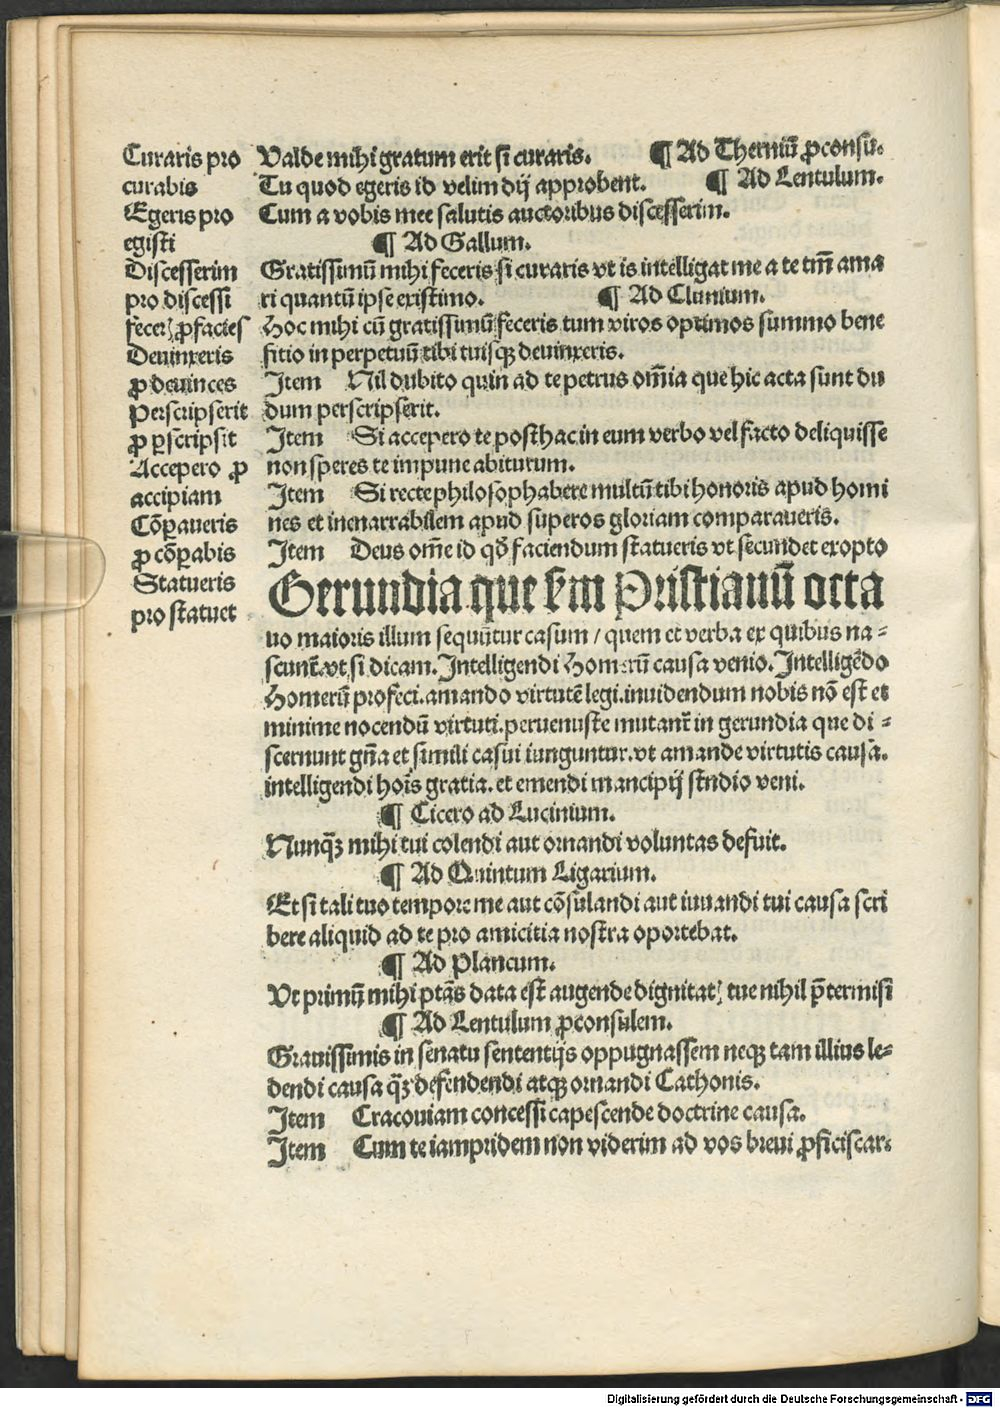 Curaris pro
curabis
Egeris pro
egisti
Discesserim
pro discessi
fecerꝭ ꝓ facies
Deuinxeris
ꝓ deuinces
Perscripserit
ꝓ ꝑscripsit
Accepero ꝓ
accipiam
Cōꝑaueris
ꝓ cōꝑabis
Statueris
pro statuet
Valde mihi gratum erit si curaris. ¶ Ad Thermū ꝓconsu.
Tu quod egeris id velim dij approbent. ¶ Ad Lentulum.
Cum a vobis mee salutis auctoribus discesserim.
¶ Ad Gallum.
Gratissimū mihi feceris si curaris vt is intelligat me a te tm̄ ama
ri quantū ipse existimo. ¶ Ad Clunium.
Hoc mihi cū gratissimū feceris tum viros optimos summo bene
fitio in perpetuū tibi tuisqꝫ deuinxeris.
Item Nil dubito quin ad te petrus om̄ia que hic acta sunt du
dum perscripserit.
Item Si accepero te posthac in eum verbo vel facto deliquisse
non speres te impune abiturum.
Item Si recte philosophabere multū tibi honoris apud homi
nes et inenarrabilem apud superos gloriam comparaueris.
Item Deus om̄e id qd̄ faciendum statueris vt secundet exopto
Gerundia que sm̄ Pristianū octa
uo maioris illum sequūtur casum / quem et verba ex quibus na⸗
scunt̄. vt si dicam. Intelligendi Homerū causa venio. Intelligēdo
Homerū profeci. amando virtutē legi. inuidendum nobis nō est et
minime nocendū virtuti. peruenuste mutant̄ in gerundia que di⸗
scernunt gn̄a et simili casui iunguntur. vt amande virtutis causa.
intelligendi hoīs gratia. et emendi mancipij studio veni.
¶ Cicero ad Lucinium.
Nunqꝫ mihi tui colendi aut ornandi voluntas defuit.
¶ Ad Quintum Ligarium.
Et si tali tuo tempore me aut cōsulandi aut iuuandi tui causa scri
bere aliquid ad te pro amicitia nostra oportebat.
¶ Ad Plancum.
Vt primū mihi ptās data est augende dignitatꝭ tue nihil p̄termisi
¶ Ad Lentulum ꝓconsulem.
Grauissimis in senatu sententijs oppugnassem neqꝫ tam illius le⸗
dendi causa qꝫ̄ defendendi atqꝫ ornandi Cathonis.
Item Cracouiam concessi capescende doctrine causa.
Item Cum te iampridem non viderim ad vos breui ꝓficiscar.
Digitalisierung gefördert durch die Deutsche Forschungsgemeinschaft - DFG